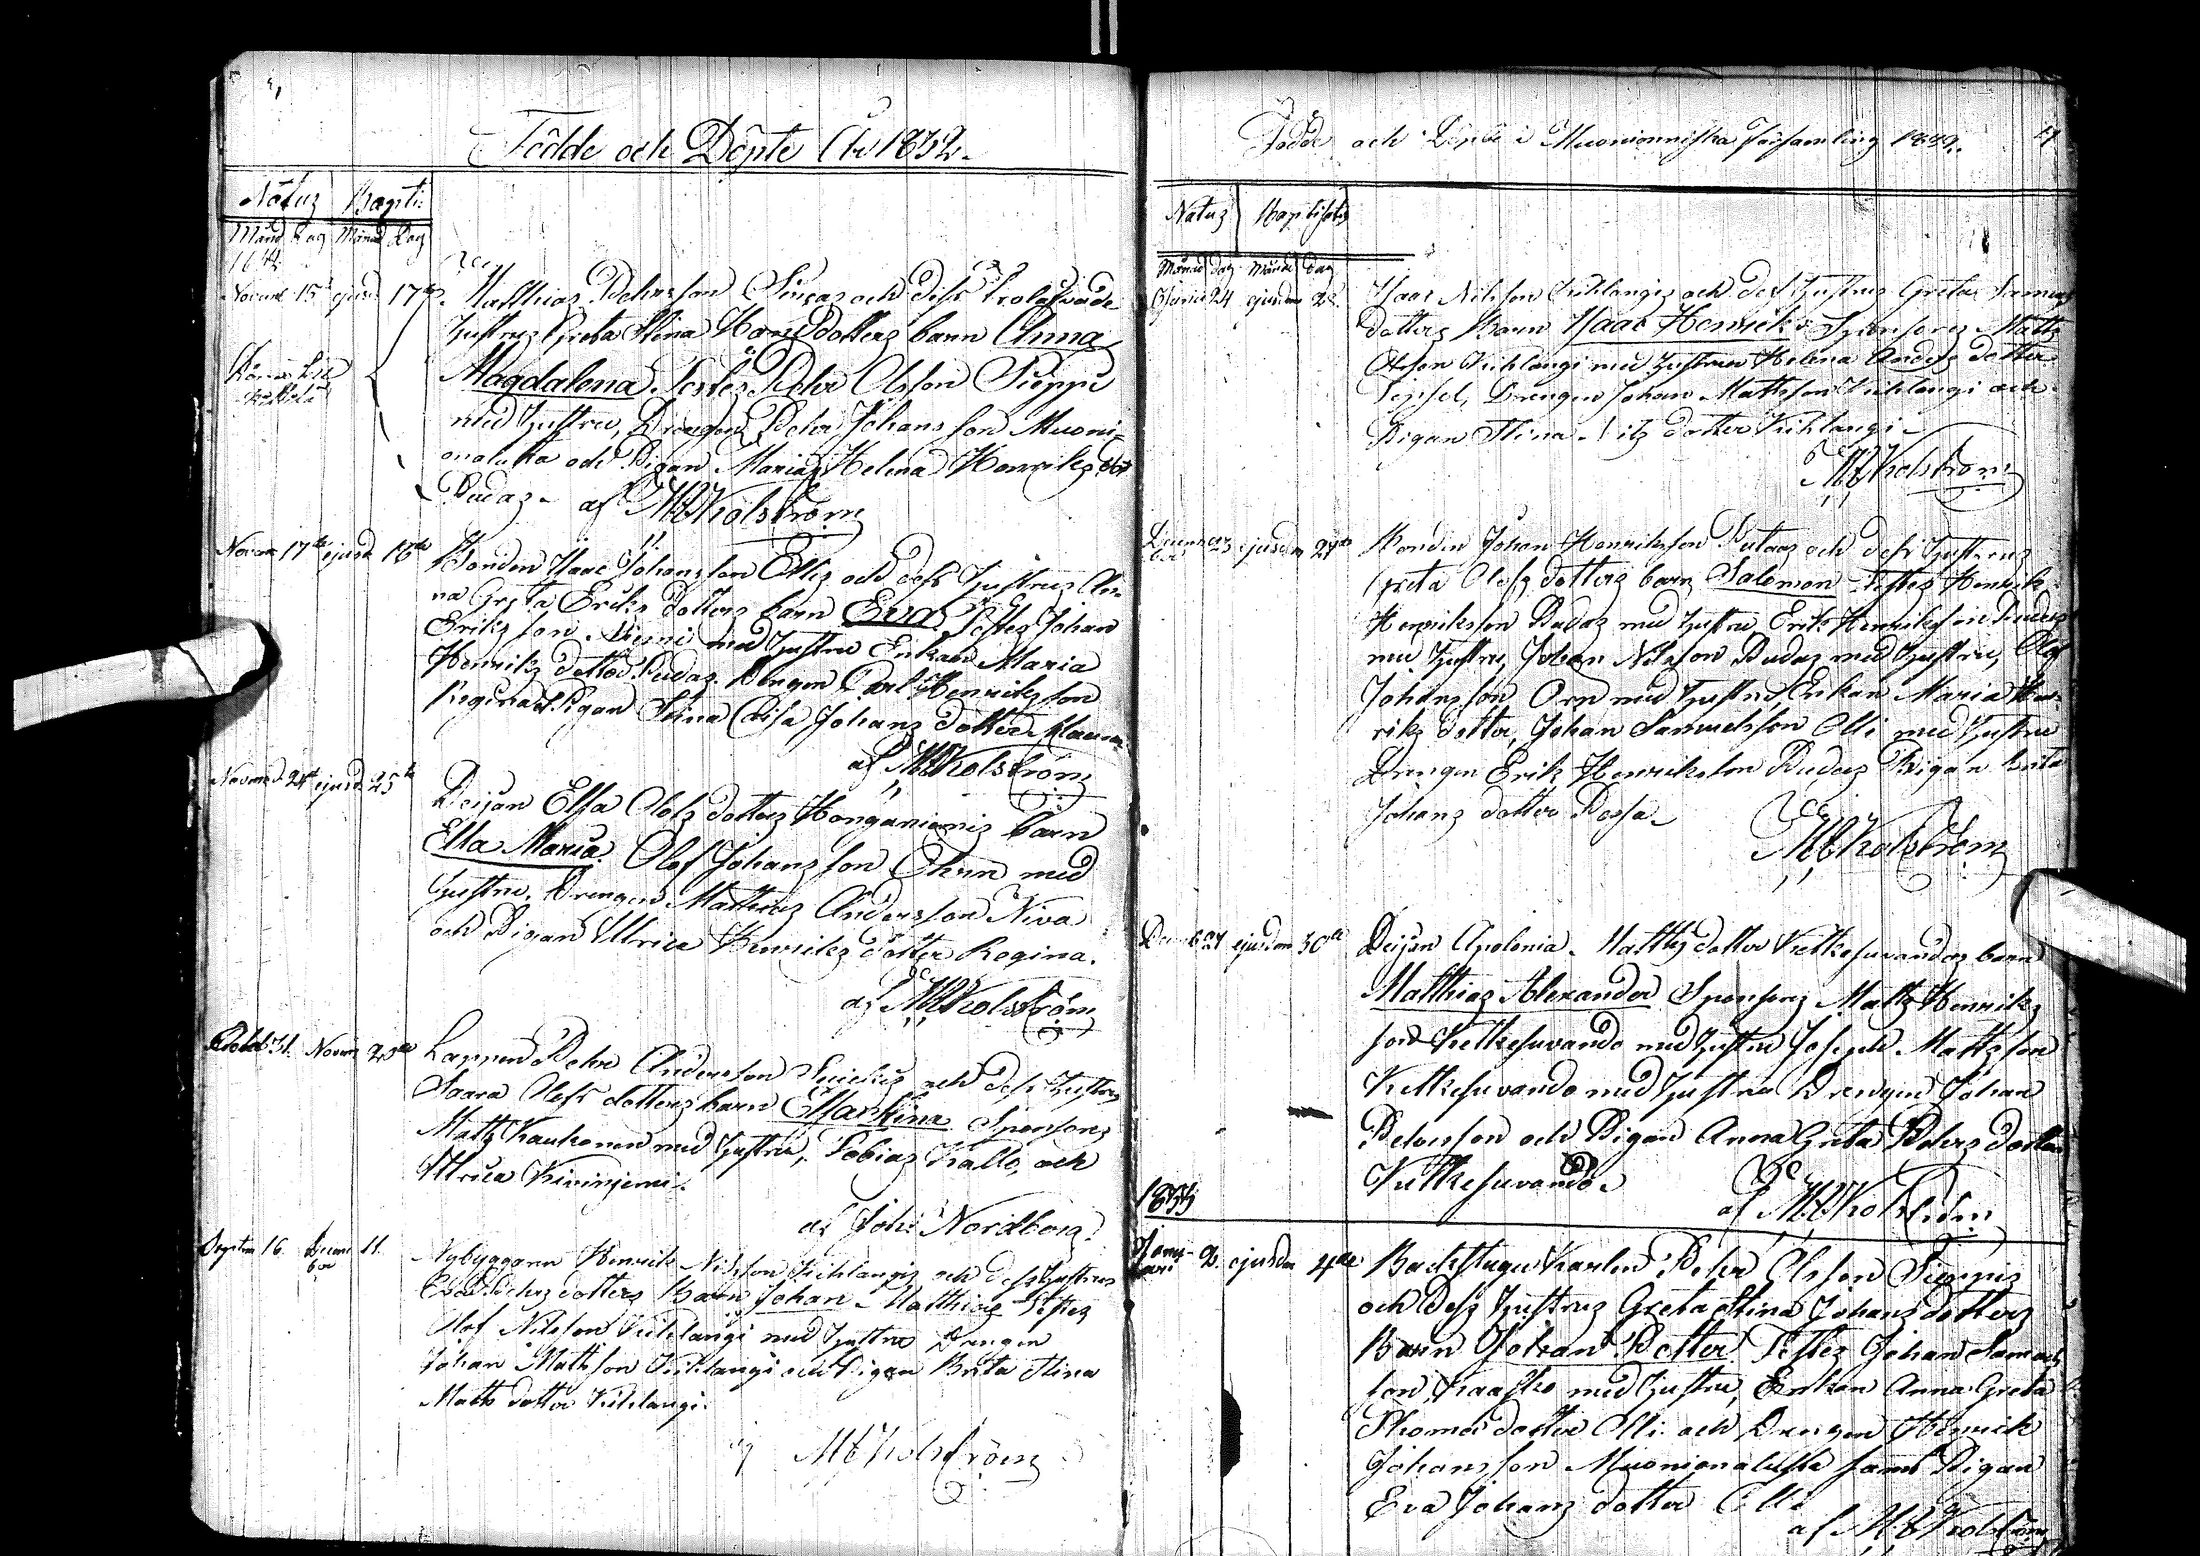 Födde och Döpte År 1832.
Natus Bapti:
Månd Dag Månad Dag
Novemb 15 ejusd 17de Matthias Pehrsson och dess trolofvade
hustrus Greta Stina Hans dotters barn Anna
Magdalena. Testes Pehr Olsson Sieppi
med hustru, Drengen Pehr Johansson Muoni-
onalusta och Pigan Maria Helena Henriks dot
Rudas. af M B Kolström
Novemb 17de ejusd 18de Bonden Isaac Johansson Ollis och dess hustrus An-
na Greta Eriks dotters barn Eva Testes Johan
Eriksson Niemi med hustru Enkan Maria
Henriks dotter Rudas. Drengen Carl Henriksson
Regina Pigan Stina Caisa Johans dotter
af M B Kolström
Novemb 24de ejusd 25te Pigan Elsa Olofs dotters Honganiemis barn
Elsa Maria. Olof Johansson Öhrn med
hustru. Drengen Matthias Andersson Niva
och Pigan Ulrica Henriks dotter Regina.
af M B Kolström
Octob 31. Novemb 25te Lappen Pehr Andersson och dess hustrus
Saara Olofs dotters barn Sponsores
Matts Kaukonen med hustru, Tobias Kallo, och
Ulrica Kivinjemi.
af Joh: Nordberg.
16. Decem ber 11. Nybyggaren Henrik Nilsson Kihlangis och dess hustrus
Pehrs dotters Barn Johan Matthias Testes
Olof Nilsson Kihlangi med hustru Drengen
Johan Mattsson Kihlangi och Pigan Brita Stina
Matts dotter Kihlangi.
af M B Kolström
Födde och Döpte i Muonionniska Församling 1832.
Natus Baptisatus
Månad dag Månad dag
24 ejusdem 25. Isaac Nilsson Kihlangis och dess hustrus Greta Samuels
dotters Barn Isaac Henrik. Sponsores Matts
Olsson Kihlangi med hustru Helena Anders dotter
Drengen Johan Mattsson Kihlangi och
Pigan Stina dotter Kihlangi
M B Kolström
Decemb 23 ejusdem 27de Bonden Johan Henriksson Rudas och dess hustrus
Greta Olofs dotters barn Salomon Testes Henrik
Henriksson Rudas med hustru Erik Henriksson Rudas
med hustru, Johan Nilsson Rudas med hustru, Olof
Johansson Örn med hustru, Enkan Maria Hen-
riks dotter, Johan Samuelsson Olli med hustru
Drengen Erik Henriksson Rudas Pigan Brita
Johans dotter
M B Kolström
Decemb 27 ejusdem 30de Pigan Apolonia Matts dotter Ketkesuvandos barn
Matthias Alexander Sponsores Matts Henriks
son Ketkesuvando med hustru Joseph Mattsson
Ketkesuvando med hustru Drengen Johan
Pehrsson och Pigan Anna Greta Pehrs dotter
Ketkesuvando.
af M B Kolström
1833
Janu- ari 2. ejusdem 4de Backstugu Karlen Pehr Olsson Sieppis
och dess hustrus Greta Stina Johans dotters
Barn Johan Petter. Testes Johan Samuels
son Kaasko med hustru, Enkan Anna Greta
Thomas dotter Olli och Drengen Henrik
Johansson Muonionalusta samt Pigan
Eva Johans dotter Olli
af M B Kolström